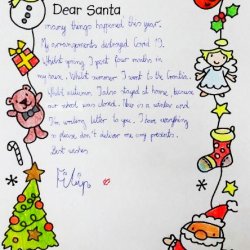 Dear Santa
many things happened this year.
My arrangements destroyed Covid '19.
Whilst spring I past four maths in
my sux. Whilst summer I went to the Croatia.
Whilst autumn I also stayed at home, because
our school was closed. This is a winter and
I'm writing letter to you. I have everything
so please don't deliver me any presents.
Best wishes
Filip